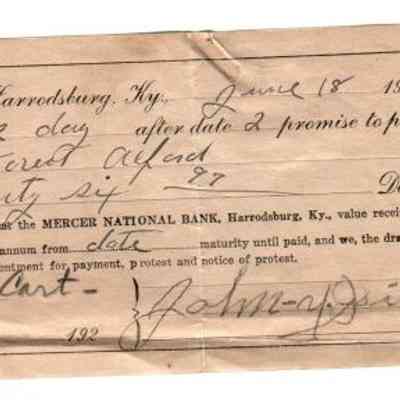 Harrodsburg, Ky., June 18 19
day after date 2 promise to p
Forest Alford
ty six 97 Do
at the MERCER NATIONAL BANK, Harrodsburg, Ky., value recei
annum from date maturity until paid, and we, the dra
entment for payment, protest and notice of protest.
Cart-
192 John